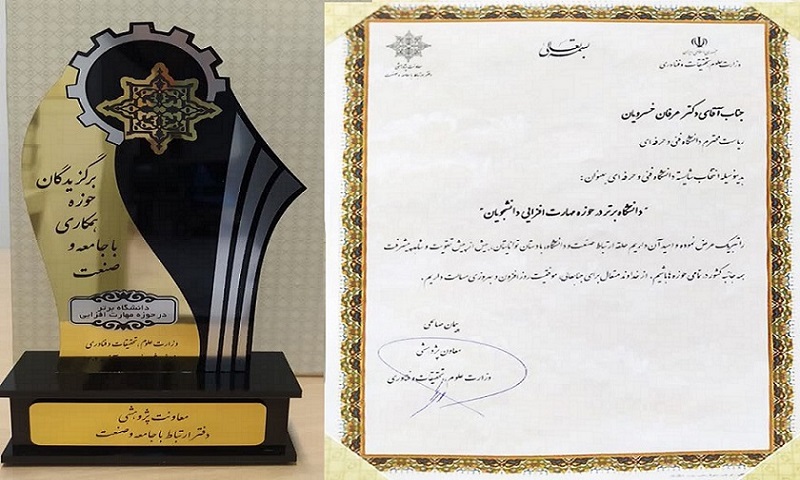 برگزیدگان
حوزه
همکاری
با جامعه و
صنعت
دانشگاه برتر
در حوزه مهارت افزایی
وزارت علوم، تحقیقات و فناوری
معاونت پژوهشی
دفتر ارتباط با جامعه و صنعت
بسمه تعالی
جمهوری اسلامی ایران
وزارت علوم، تحقیقات و فناوری
معاونت پژوهشی
دفتر ارتباط با جامعه و صنعت
جناب آقای دکتر عرفان خسرویان
ریاست محترم دانشگاه فنی و حرفه ای
بدینوسیله انتخاب شایسته دانشگاه فنی و حرفه ای بعنوان :
"دانشگاه برتر در حوزه مهارت افزایی دانشجویان"
را تبریک عرض نموده و امید آن داریم حلقه ارتباط صنعت و دانشگاه، با دستان توانایتان، بیش از پیش تقویت و شاهد پیشرفت
همه جانبه کشور در تمامی حوزه ها باشیم. از خداوند متعال برای جنابعالی، موفقیت روز افزون و بهروزی مسالت داریم.
پیمان صالحی
معاون پژوهشی
وزارت علوم، تحقیقات و فناوری